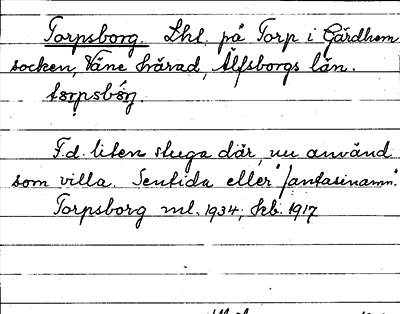 Torpsborg. Lhl. på Torp i Gärdhem
socken, Väne härad, Älfsborgs län.
tɔrpsbɔ́rj.
F.d. liten stuga där, nu använd
som villa. Sentida eller "fantasinamn".
Torpsborg ml. 1934, hkb. 1917